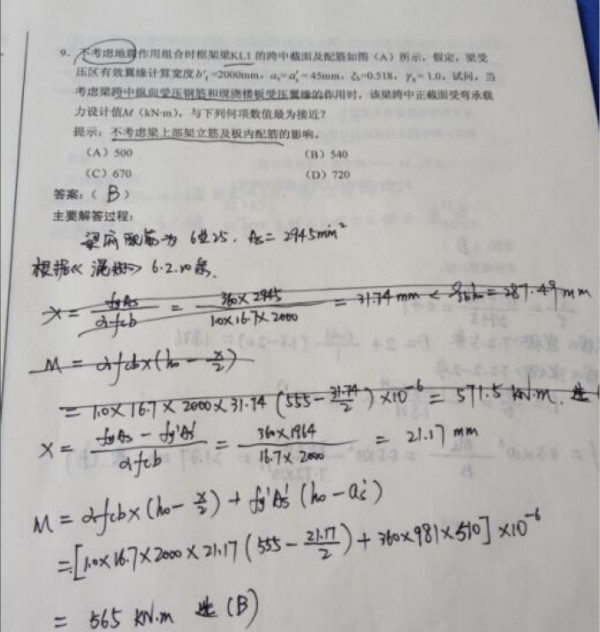 9. 不考虑地震作用组合时框架梁KL1 的跨中截面及配筋如图（A）所示，假定，梁受
压区有效翼缘计算宽度 b'f =2000mm，as=a's = 45mm，ξb=0.518，γ0 = 1.0。试问，当
考虑梁跨中纵向受压钢筋和现浇楼板受压翼缘的作用时，该梁跨中正截面受弯承载
力设计值M（kN·m），与下列何项数值最为接近？
提示：不考虑梁上部架立筋及板内配筋的影响。
（A）500 （B）540
（C）670 （D）720
答案：（ B ）
主要解答过程：
梁底配筋为 6⌀25. As = 2945mm²
根据《混规》6.2.10条.
x = fyAs / α1fcb = 360×2945 / 1.0×16.7×2000 = 31.74 mm < ξbho = 287.49 mm
M = α1fcbx(ho - x/2)
= 1.0×16.7×2000×31.74 (555 - 31.74/2)×10⁻⁶ = 571.5 kN.m. 选
x = fyAs - fy'As' / α1fcb = 360×1964 / 16.7×2000 = 21.17 mm
M = α1fcbx(ho - x/2) + fy'As'(ho - as')
=[1.0×16.7×2000×21.17 (555 - 21.17/2) + 360×981×510]×10⁻⁶
= 565 kN.m 选 (B)